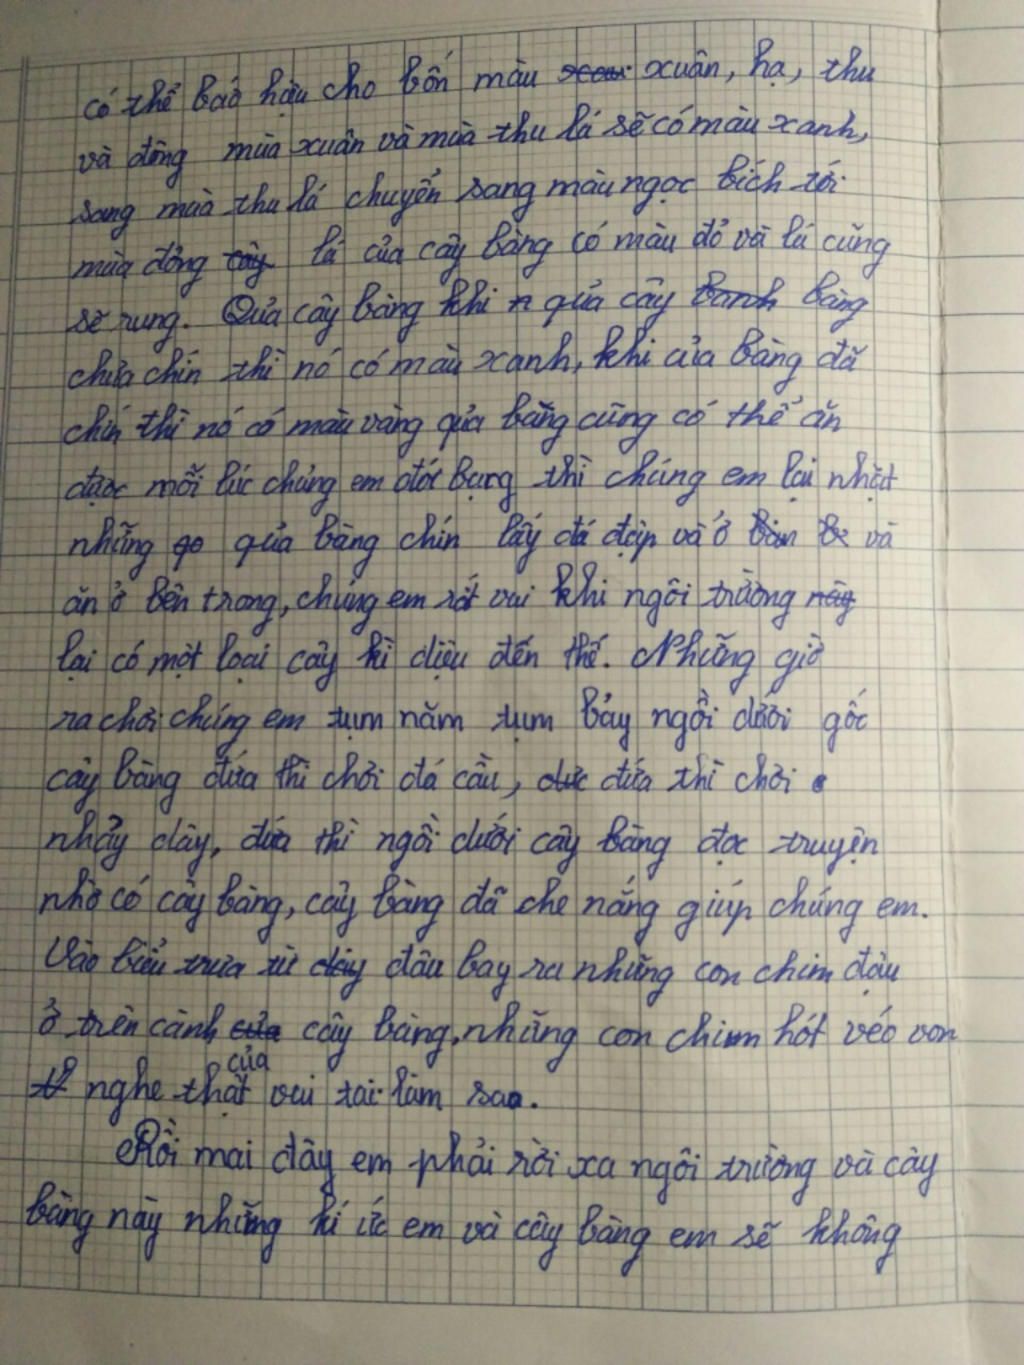 có thể báo hậu cho bốn màu xuân, hạ, thu
và đông mùa xuân và mùa thu lá sẽ có màu xanh,
sang mùa thu lá chuyển sang màu ngọc bích tới
mùa đông lá của cây bàng có màu đỏ và lá cũng
sẽ rung. Qủa cây bàng khi qủa cây bàng
chưa chín thì nó có màu xanh, khi của bàng đã
chín thì nó có màu vàng qủa bàng cũng có thể ăn
được mỗi lúc chúng em đói bụng thì chúng em lại nhặt
những qủa bàng chín lấy đá đập và ở và
ăn ở bên trong, chúng em rất vui khi ngôi trường
lại có một loại cây kì diệu đến thế. Những giờ
ra chơi chúng em tụm năm tụm bảy ngồi dưới gốc
cây bàng đứa thì chơi đá cầu, đứa thì chơi
nhảy dây, đứa thì ngồi dưới cây bàng đọc truyện
nhờ có cây bàng, cây bàng đã che nắng giúp chúng em.
Vào buổi trưa từ đâu bay ra những con chim đậu
ở trên cành cây bàng, những con chim hót véo von
của
nghe thật vui tai làm sao.
Rồi mai đây em phải rời xa ngôi trường và cây
bàng này những kí ức em và cây bàng em sẽ không